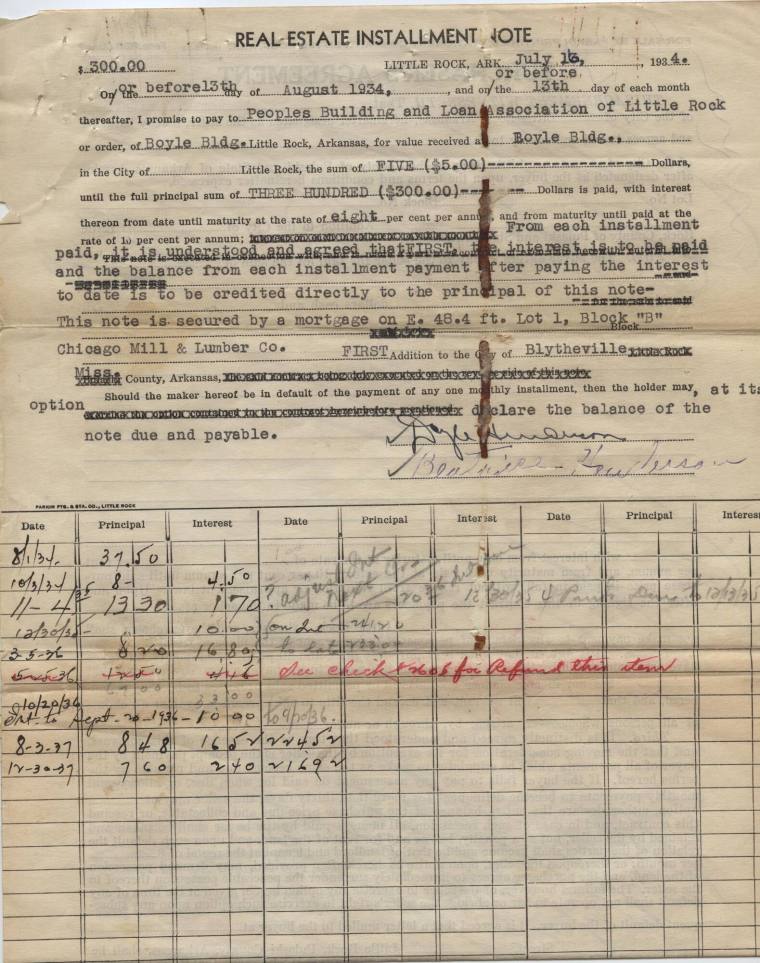 REAL ESTATE INSTALLMENT NOTE
$ 300.00 LITTLE ROCK, ARK. July 16, , 1934.
On/the or before 13th day of August 1934, , and on/the or before 13th day of each month
thereafter, I promise to pay to Peoples Building and Loan Association of Little Rock
or order, of Boyle Bldg. Little Rock, Arkansas, for value received at Boyle Bldg.,
in the City of Little Rock, the sum of FIVE ($5.00)------------------ Dollars,
until the full principal sum of THREE HUNDRED ($300.00)--- -- Dollars is paid, with interest
thereon from date until maturity at the rate of eight per cent per annum, and from maturity until paid at the
rate of 10 per cent per annum; From each installment
paid, it is understood and agreed that FIRST, the interest is to be paid
and the balance from each installment payment after paying the interest
to date is to be credited directly to the principal of this note-
This note is secured by a mortgage on E. 48.4 ft. Lot 1, Block "B"
Block
Chicago Mill & Lumber Co. FIRST Addition to the City of Blytheville Little Rock
Miss. County, Arkansas,
Should the maker hereof be in default of the payment of any one monthly installment, then the holder may, at its
option declare the balance of the
note due and payable.
Doyle Henderson
Beatrice Henderson
PARKIN PTG. & STA. CO., LITTLE ROCK
Date Principal Interest Date Principal Interest Date Principal Interest
8/1/34. 37.50
10/3/34 8- 4.50 ? adjust Int
11-4/35 13 30 1 70 next 12/30/35 4 to 12/13/35
12/30/35- 10.00 on Int 24120
3-5-36 8 20 16 80
5-5-36 See check # 2606 for Refund this item
10/20/36 33 00
Int. to Sept-20-1936- 10 00 to 9/20/36.
8-3-37 8 48 16 52 22452
12-30-37 7 60 2 40 21692